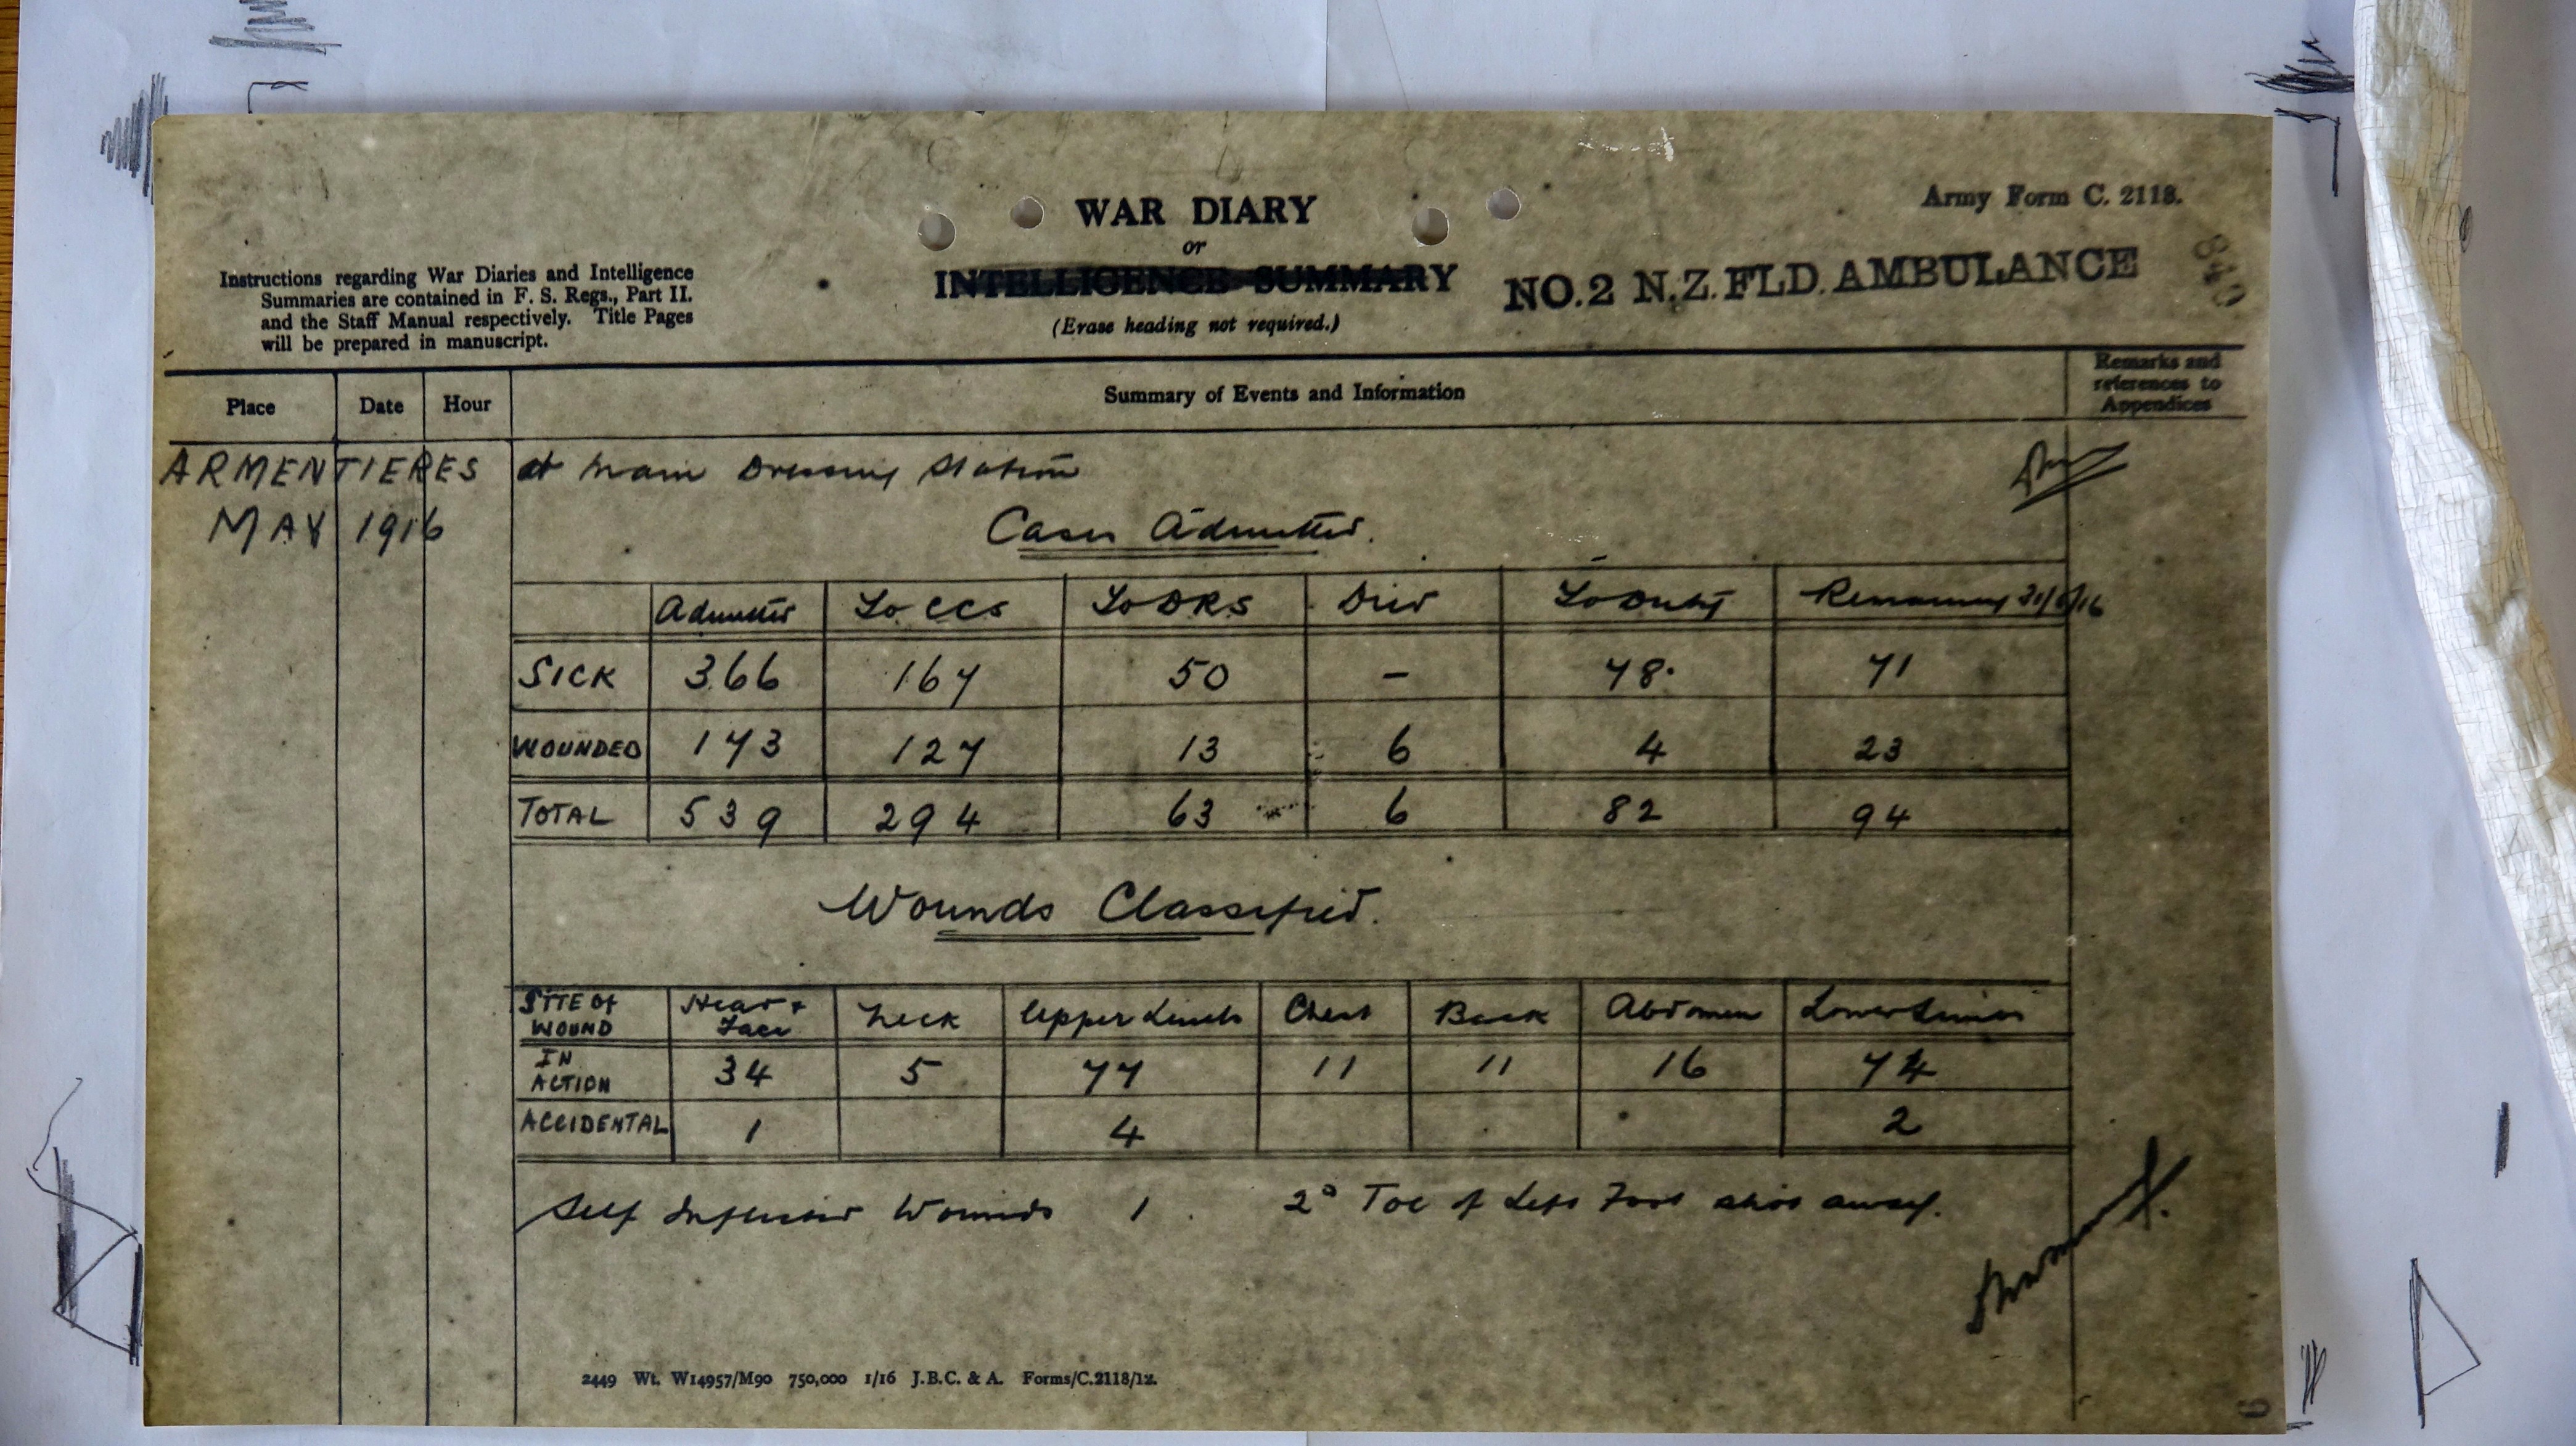 WAR DIARY
or
INTELLIGENCE SUMMARY
(Erase heading not required.)
Army Form C. 2118.
NO.2 N.Z. FLD. AMBULANCE
840
Instructions regarding War Diaries and Intelligence
Summaries are contained in F. S. Regs., Part II.
and the Staff Manual respectively. Title Pages
will be prepared in manuscript.
Place Date Hour Summary of Events and Information
Remarks and
references to
Appendices
ARMENTIERES at Main Dressing Station
MAY 1916
Cases Admitted.
Admitted To CCS To DRS Died To Duty Remaining 31/5/16
SICK 366 167 50 - 78. 71
WOUNDED 173 127 13 6 4 23
TOTAL 539 294 63 6 82 94
Wounds Classified.
SITE OF WOUND Head + Face Neck Upper Limbs Chest Back Abdomen Lower Limbs
IN ACTION 34 5 77 11 11 16 74
ACCIDENTAL 1 4 2
Self Inflicted Wounds 1. 2° Toe of Left Foot shot away.
2449 Wt. W14957/M90 750,000 1/16 J.B.C. & A. Forms/C.2118/12.